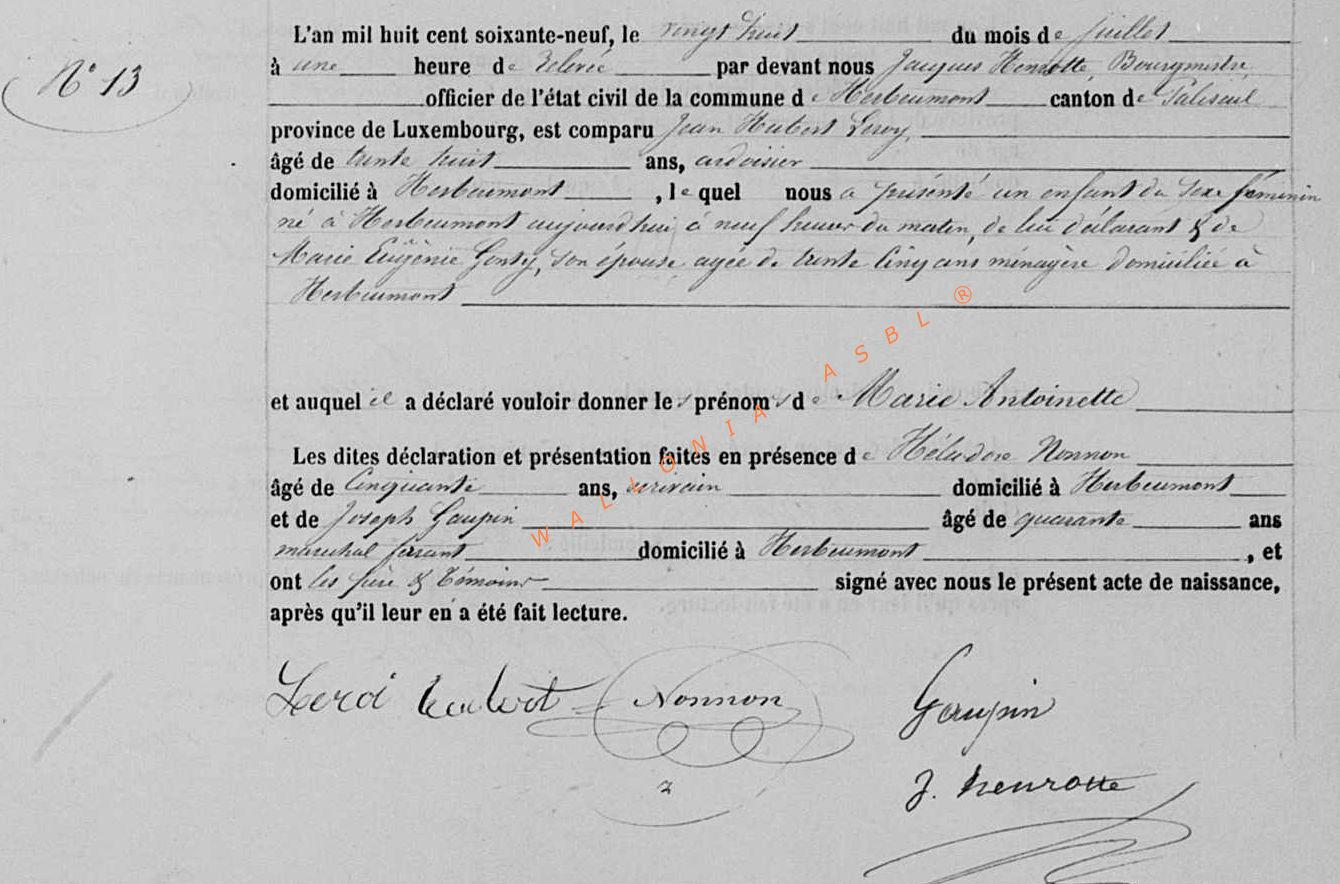 N° 13
L'an mil huit cent soixante-neuf, le vingt huit du mois de juillet
à une heure de relevée par devant nous Jacques Henrotte, Bourgmestre,
officier de l'état civil de la commune de Herbeumont canton de Paliseul
province de Luxembourg, est comparu Jean Hubert Leroy,
âgé de trente huit ans, ardoisier
domicilié à Herbeumont, lequel nous a présenté un enfant du sexe féminin
né à Herbeumont aujourd'hui à neuf heures du matin, de lui déclarant & de
Marie Eugénie Gonty, son épouse, agée de trente cinq ans ménagère domiciliée à
Herbeumont
et auquel il a déclaré vouloir donner les prénoms de Marie Antoinette
Les dites déclaration et présentation faites en présence de Héliodore Nonnon
âgé de Cinquante ans, écrivain domicilié à Herbeumont
et de Joseph Gaupin âgé de quarante ans
maréchal ferrant domicilié à Herbeumont, et
ont les père & témoins signé avec nous le présent acte de naissance,
après qu'il leur en a été fait lecture.
Leroi hubert Nonnon Gaupin
J. henrotte
WALLONIA ASBL ®